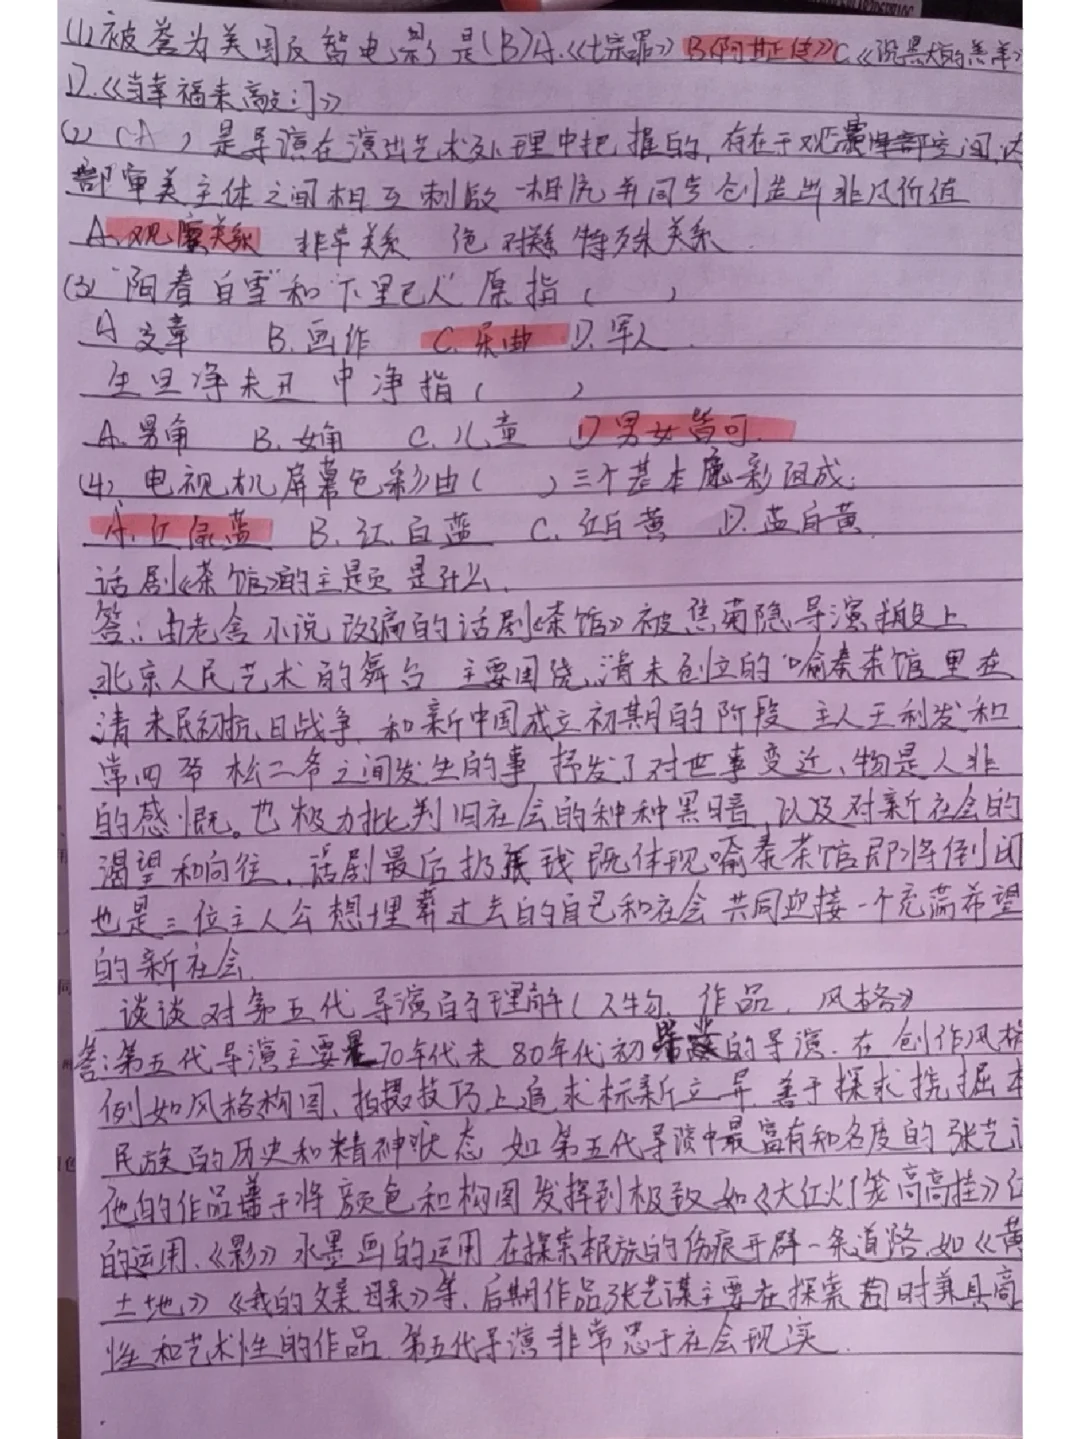 (1)被誉为美国反智电影是(B)A.《七宗罪》B《阿甘正传》C.《沉默的羔羊》
D.《当幸福来敲门》
(2)(A)是导演在演出艺术处理中把握的,存在于观演 空间,
部审美主体之间相互刺激 相 并同步创造出非凡价值
A.观演关系 非常关系 绝对关系 特殊关系
(3)"阳春白雪"和"下里巴人"原指( )
A 文章 B.画作 C.乐曲 D.军人.
生旦净末丑中净指( )
A.男角 B.女角 C.儿童 D男女皆可.
(4)电视机屏幕色彩由( )三个基本 彩因成:
A.红绿蓝 B.红白蓝 C.红白黄 D.蓝白黄
话剧《茶馆》的主题是什么.
答:由老舍小说改编的话剧《茶馆》被焦菊隐导演搬上
北京人民艺术的舞台 主要围绕清末创立的喻泰茶馆里在
清末民初抗日战争 和新中国成立初期的阶段 主人王利发和
常四爷 松二爷之间发生的事 抒发了对世事变迁、物是人非
的感慨。也极力批判旧社会的种种黑暗,以及对新社会的
渴望和向往,话剧最后扔 钱既体现喻泰茶馆即将倒闭
也是三位主人公想埋葬过去的自己和社会共同迎接一个充满希望
的新社会.
谈谈对第五代导演的理解(人物、作品、风格)
答:第五代导演主要是70年代末80年代初毕业的导演.在创作风格
例如风格构图、拍摄技巧上追求标新立异 善于探求挖掘本
民族的历史和精神状态 如第五代导演中最富有知名度的张艺
他的作品善于将颜色和构图发挥到极致 如《大红灯笼高高挂》红
的运用、《影》水墨画的运用 在探索民族的伤痕开辟一条道路.如《黄
土地》《我的父亲母亲》等.后期作品张艺谋主要在探索 同时兼具商
性和艺术性的作品.第五代导演非常忠于社会现实.